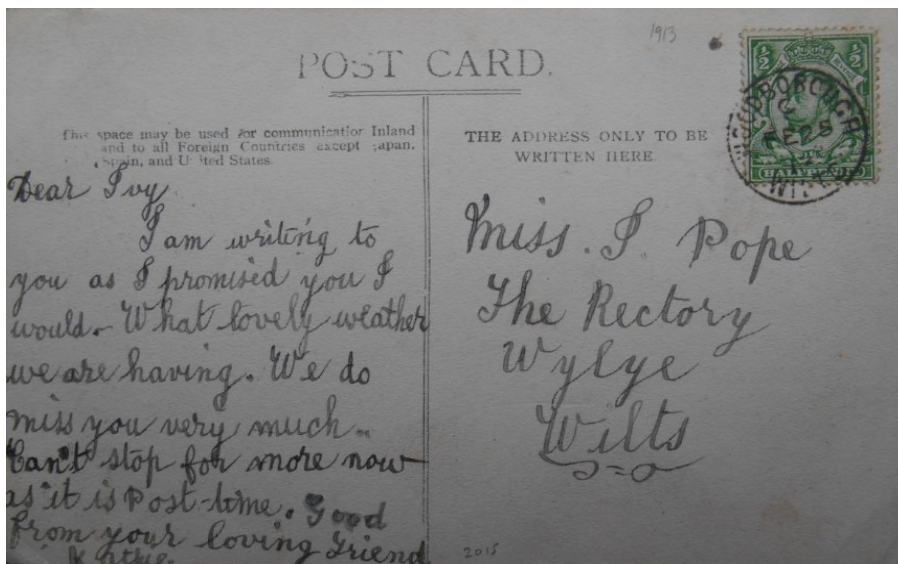 1913
POST CARD.
This space may be used for communication Inland
and to all Foreign Countries except Japan,
Spain, and United States.
THE ADDRESS ONLY TO BE
WRITTEN HERE.
½ ½
HALFPENNY
WILTS
Dear Ivy
I am writing to
you as I promised you I
would. What lovely weather
we are having. We do
miss you very much.
Can't stop for more now
as it is Post-time. Good
from your loving Friend
Miss. I. Pope
The Rectory
Wylye
Wilts
2015